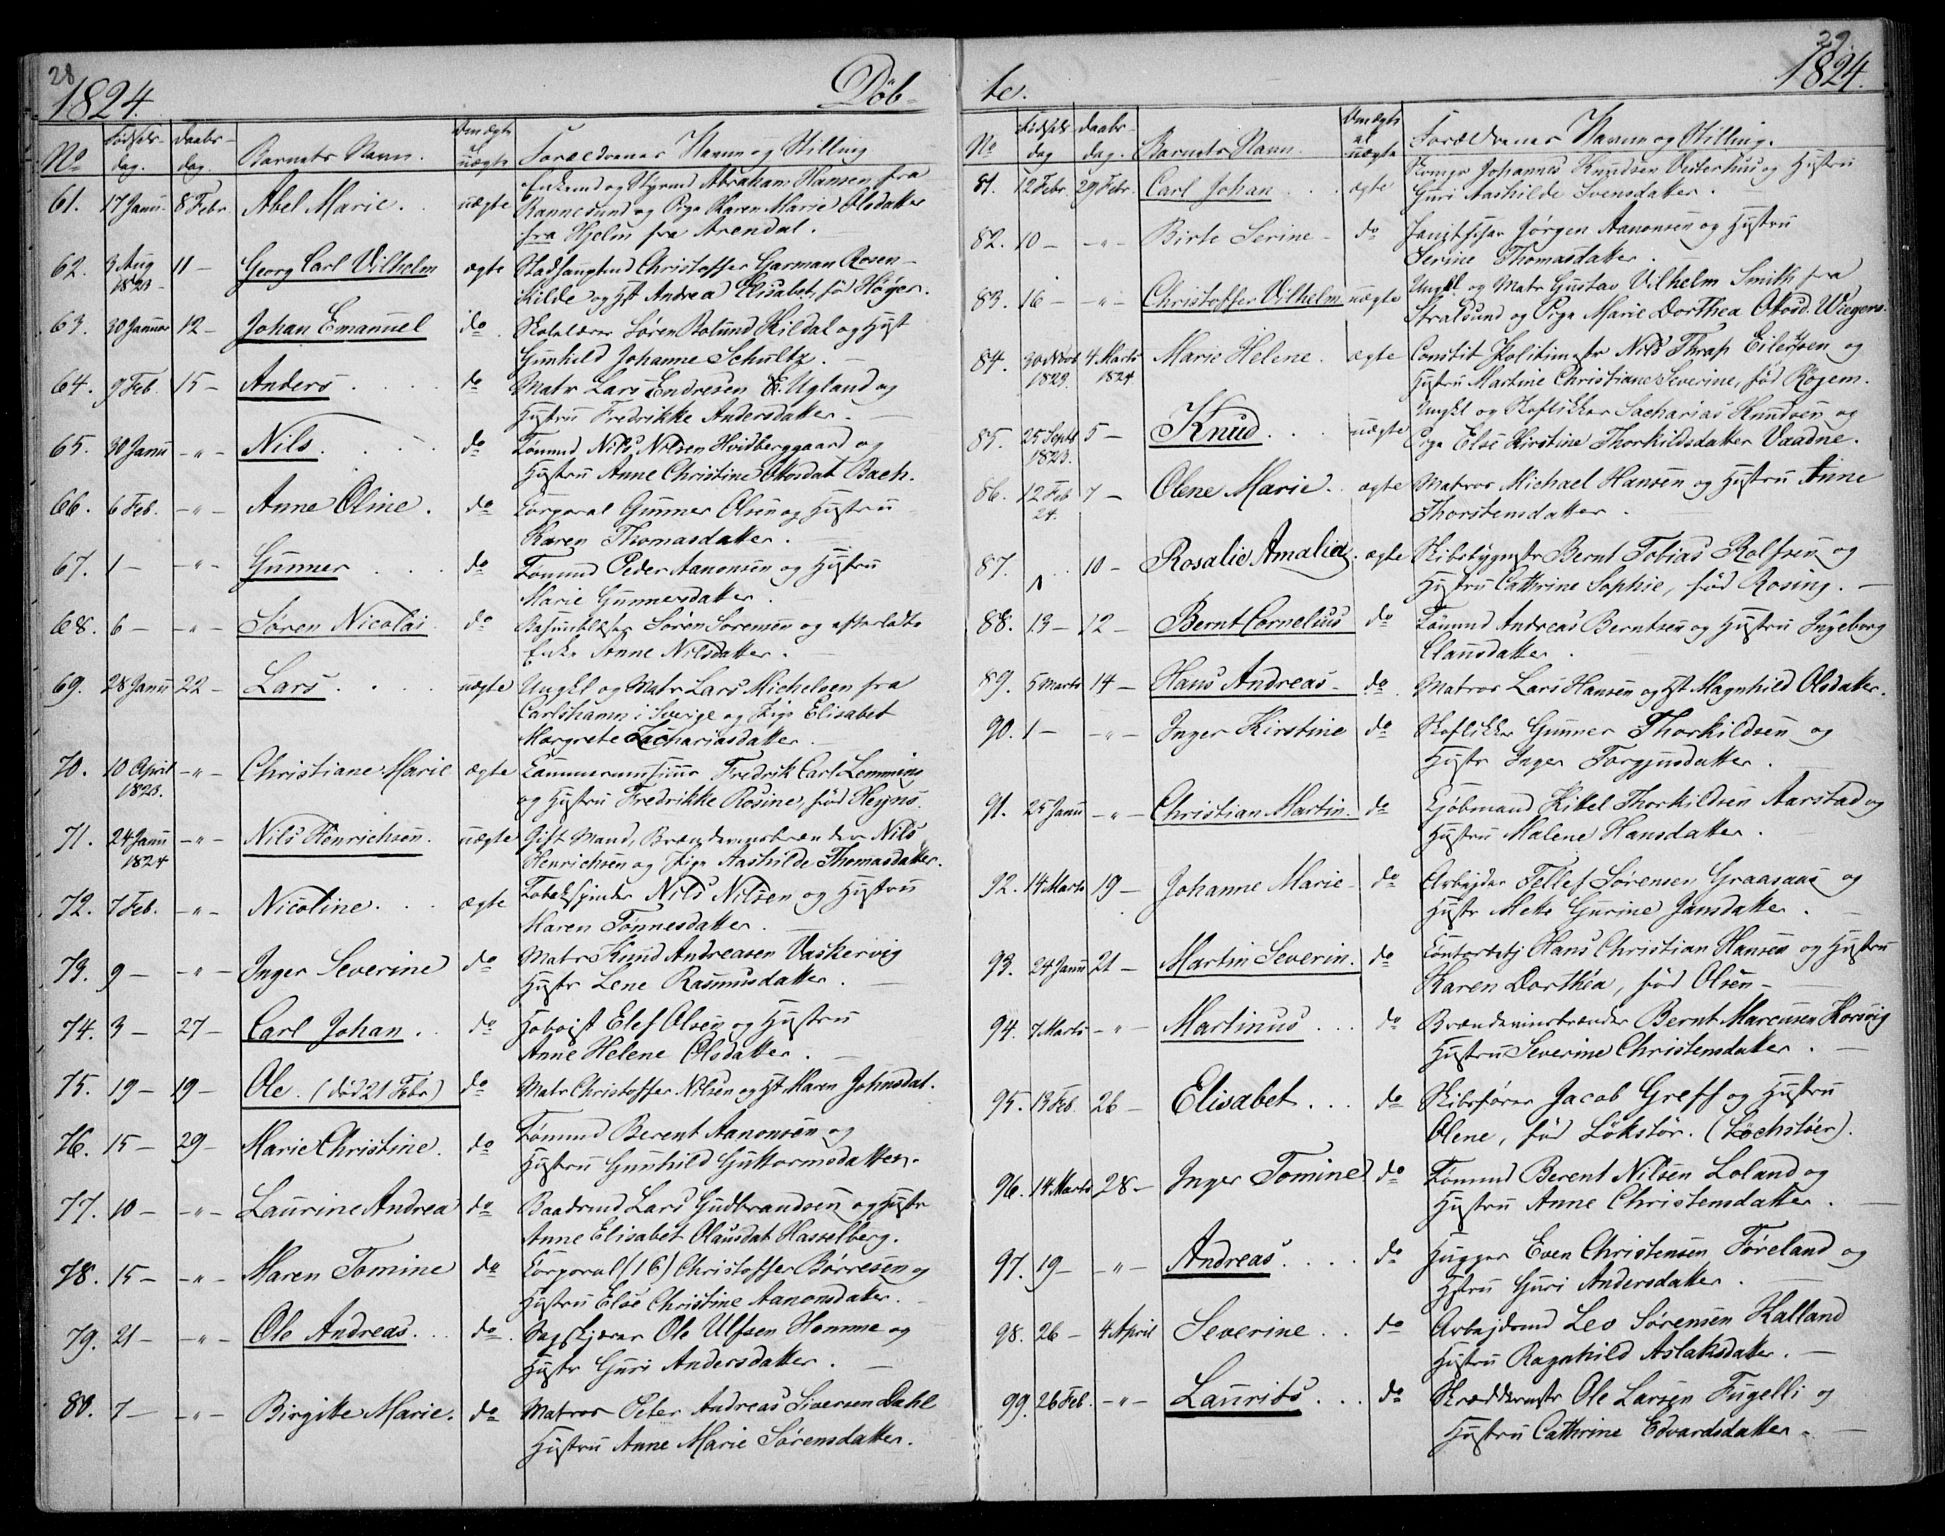 28
1824.
Döb-
No
Fødsels-
dag.
Daabs-
dag.
Barnets Navn.
Om ægte
el
uægte
Forældrenes Navn og Stilling
61. 17 Janu. 8 Febr Abel Marie. uægte Enkemd og Styrmd Abraham Hansen fra
Rannesund og Pige Karen Marie Olsdatter
fra Hjelm fra Arendal.
62. 3 Aug 11 — Georg Carl Vilhelm ægte Stadshauptmd Christoffer Garman Rosen-
1823 kilde og Hst Andrea Elisabet, fød Høyer.
63. 30 Januar 12 — Johan Emanuel do Skolelærer Søren Rolund Kildal og Hust
Gunhild Johanne Schultz. —
64. 9 Feb. 15 — Anders . . . . do Matr Lars Endresen E. Ugland og
Hustru Fredrikke Andersdatter. —
65. 30 Janu — " — Nils. . . . . do Tømmd Nils Nilsen Hvidberggaard og
Hustru Anne Christine Olsdat Bach.
66. 6 Feb. — " — Anne Oline. do Corporal Gunner Olsen og Hustru
Karen Thomasdatter. —
67. 1 — — " — Gunner . . . do Tømmd Peder Aanonsen og Hustru
Marie Gunnersdatter.
68. 6 — — " — Søren Nicolai do Søren Sørensen og efterladte
Enke Anne Nilsdatter. —
69. 28 Janu 22 — Lars . . . . uægte Ungkl og Matr Lars Michelsen fra
Carlshamn i Sverige og Pige Elisabet
Margrete Zachariasdatter. —
70. 10 April — " — Christiane Marie ægte Fredrik Carl Lemming
1823. og Hustru Fredrikke Rosine, fød Heyns.
71. 24 Janu — " — Nils Henrichsen. uægte Gift Mand, Brændevinsbrænder Nils
1824 Henrichsen og Pige Aashilde Thomasdatter.
72. 7 Feb. — " — Nicoline. . . ægte Tobakspinder Nils Nilsen og Hustru
Maren Tønnesdatter. —
73. 9 — — " — Inger Severine do Matr Knud Andreasen Vaskervig
Hustr Lene Rasmusdatter. —
74. 3 — 27 — Carl Johan . do Hoboist Elef Olsen og Hustru
Anne Helene Olsdatter. —
75. 19 — 19 — Ole. (død 21 Febr) do Matr Christoffer Nilsen og Hst Karen Johnsdat.
76. 15 — 29 — Marie Christine. do Tømmd Berent Aanonsen og
Hustru Gunhild Guttormsdatter.
77. 10 — — " — Laurine Andrea do Baadsmd Lars Gudbrandsen og Hustr
Anne Elisabet Olausdat Hasselberg.
78. 15 — — " — Maren Tomine do Corporal (16) Christoffer Børresen og
Hustru Else Christine Aanonsdatter. —
79. 21 — — " — Ole Andreas. . do. Sagskjærer Ole Ulfsen Homme og
Hustr Guri Andersdatter. —
80. 7 — — " — Birgitte Marie. do Matros Peter Andreas Siversen Dahl
Hustru Anne Marie Sørensdatter.
29.
1824.
te.
No
Fødsels
dag
Daabs-
dag.
Barnets Navn.
Om ægte
el
uægte
Forældrenes Navn og Stilling.
81. 12 Febr. 29 Febr. Carl Johan . . . ægte Johannes Knudsen Vesterhus og Hustru
Guri Aashilde Svensdatter.
82. 10 — — " — Birte Serine — do Janitschar Jørgen Aanonsen og Hustru
Serine Thomasdatter. —
83. 16 — — " — Christoffer Vilhelm uægte Ungkl og Matr Gustav Vilhelm Smith fra
Stralsund og Pige Marie Dorthea Ottosd. Wiegers.
84. 30 Novb 4 Marts Marie Helene. ægte Constit Politimstr Nils Thrap Eilertsen og
1823. 1824 Hustru Martine Christiane Severine, fød Rogem.
85. 25 Septb 5 — Knud. . . . uægte Ungkl og Skoflikker Sacharias Knudsen og
1823. Pige Else Kirstine Thorkildsdatter Vaadne.
86. 12 Feb 7 — Olene Marie. ægte Matros Michael Hansen og Hustru Anne
24. Thorstensdatter.
87. . . 10 — Rosalie Amalia. ægte Skibsbygmstr Bernt Tobias Rolfsen og
Hustru Cathrine Sophie, fød Rosing. —
88. 13 — 12 — Bernt Cornelius do Tømmd Andreas Berntsen og Hustru Ingeborg
Clausdatter.
89. 5 Marts 14 — Hans Andreas — do Matros Lars Hansen og Hst Magnhild Olsdatter.
90. 1 — — " — Inger Kirstine do Skoflikker Gunner Thorkildsen og
Hustr Inger Torgjusdatter. —
91. 25 Janu — " — Christian Martin. do Kjøbmand Kittel Thorkildsen Aarstad og
Hustru Malene Hansdatter. —
92. 14 Marts 19 — Johanne Marie — do Arbejder Tellef Sørensen Graasaas og
Hustr Mette Gurine Jansdatter. —
93. 24 Janu 21 — Martin Severin. do Hans Christian Hansen og Hustru
Karen Dorthea, fød Olsen —
94. 7 Marts — " — Martinus . . . do Brændevinsbrænder Bernt Marcusen Korsvig
Hustru Severine Christensdatter. —
95. 13 Feb. 26 — Elisabet. . . . do Skibsfører Jacob Greff og Hustru
Olene, fød Løkstør. (Lochstøer).
96. 14 Marts 28 — Inger Tomine do Tømmd Berent Nilsen Loland og
Hustru Anne Christensdatter. —
97. 19 — — " — Andreas . . . . do Hugger Even Christensen Føreland og
Hstru Guri Andersdatter. —
98. 26 — 4 April Severine . . . do Arbejdsmd Leo Sørensen Halland
Hustru Ragnhild Aslaksdatter. —
99. 26 Feb. — " — Laurits . . . do Skræddermstr Ole Larsen Fugelli og
Hustru Cathrine Edvardsdatter. —